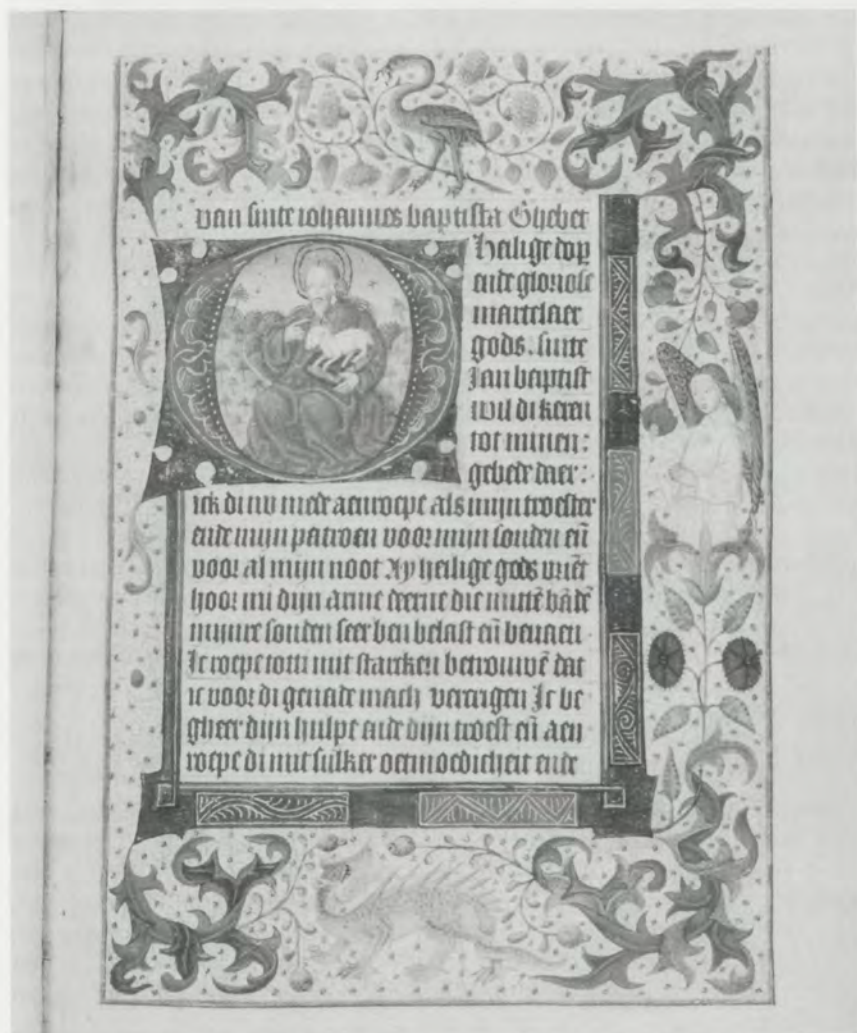 van sinte iohannes baptista Ghebet
Heilige dop
ende gloriose
martelaer
gods. sinte
Jan baptist
wil di keren
tot minen:
gebede daer:
ick di nu mede aenroepe als mijn troester
ende mijn patroen voor mijn sonden eñ
voor al mijn noot Ay heilige gods vriēt
hoor mi dijn arme deerne die mittē bādē
mijnre sonden seer ben belast eñ bevaen
Ic roepe totti mit starcken betrouwē dat
ic voor di genade mach vercrigen Ic be
gheer dijn hulpe ende dijn troest eñ aen
roepe di mit sulker oetmoedicheit ende